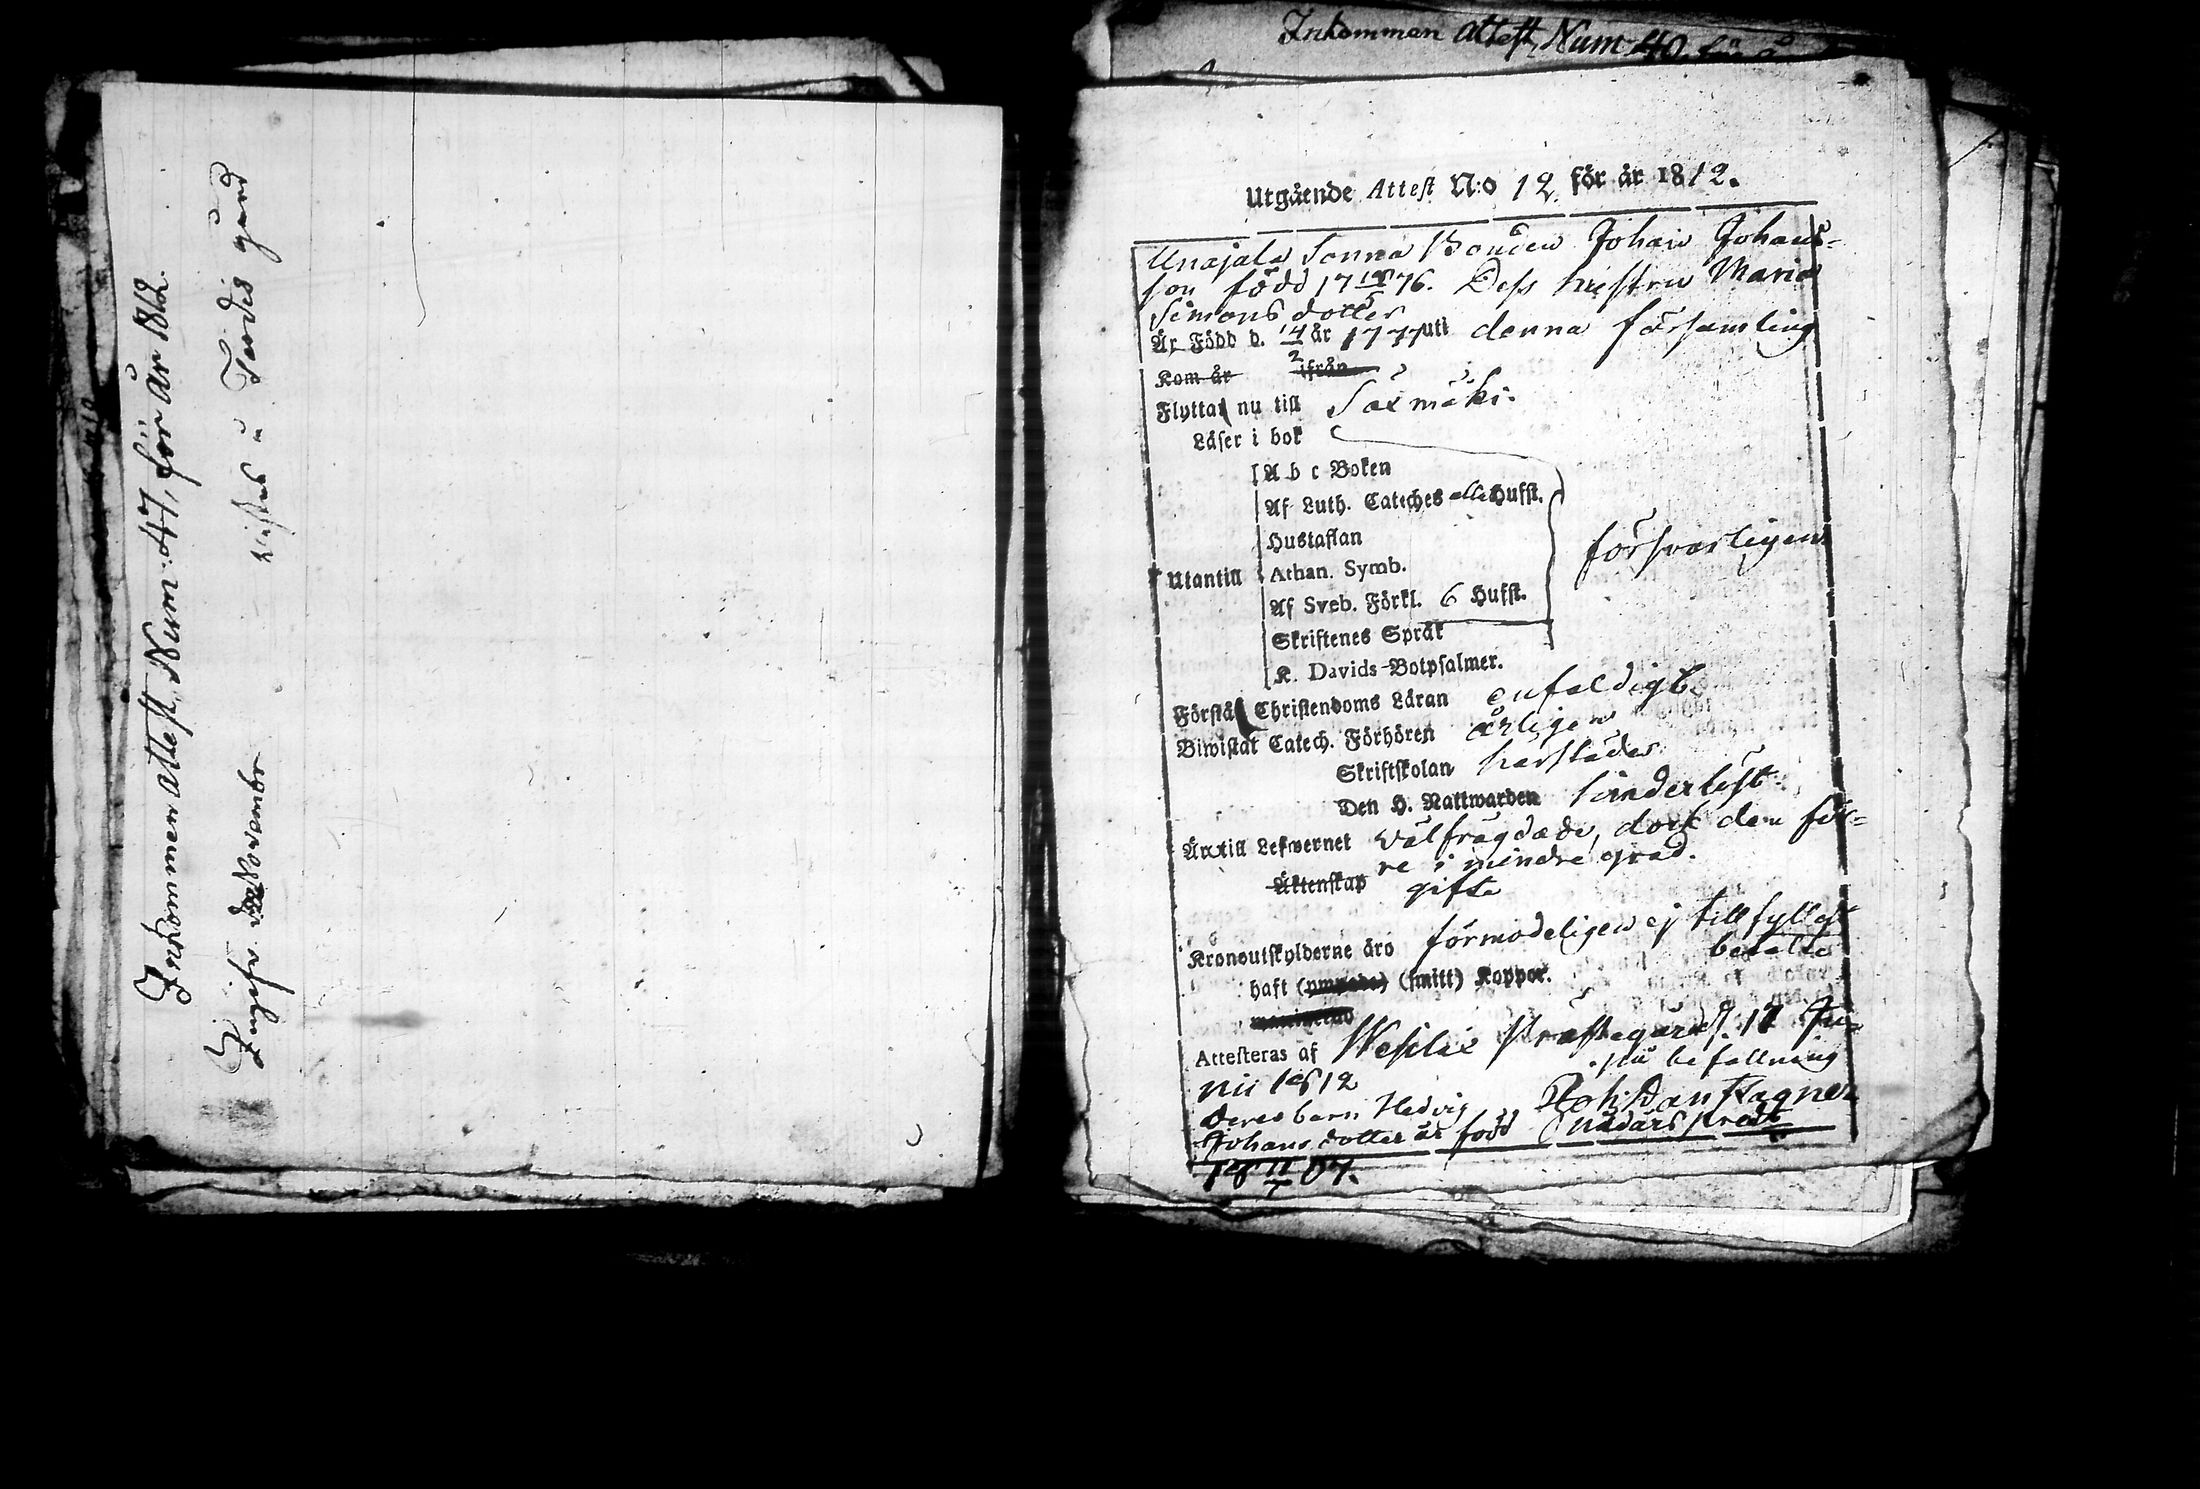 Inkommen attest, Num: 47, för År 1812.
Inkommen attest, Num 40. för å
Utgående Attest N:o 12. för år 1812.
Unajala Sonna Bonden Johan Johans-
son född 17 18/5 76. Dess hustru Maria
Simons dotter
Är Född d. 14/2 år 1777 uti denna församling
Kom år ifrån
Flyttar nu till Säxmäki.
Läser i bok
A b c Boken
Af Luth. Cateches alle Hufst.
Hustaflan
Utantill Athan. Symb. försvarligen
Af Sveb. Förkl. 6 Hufst.
Skriftenes Språk
K. Davids-Botpsalmer.
Förstå Christendoms Läran enfaldigt.
Biwistat Catech. Förhören årligen
Skriftskolan härstädes
Den H. Nattwarden
Är till Lefvernet välfrägdade, dock den för-
re i mindre grad.
Äktenskap gifte
Kronoutskylderne äro förmodeligen ej tillfyllest
betalte
haft (smitt) Koppor.
Attesteras af Vesilax Prästegård d. 17 Ju-
nii 1812 på befallning
Deras barn Hedvig Joh: Dan
Johans dotter är född Nådårs Pred:
18 11/7 07.